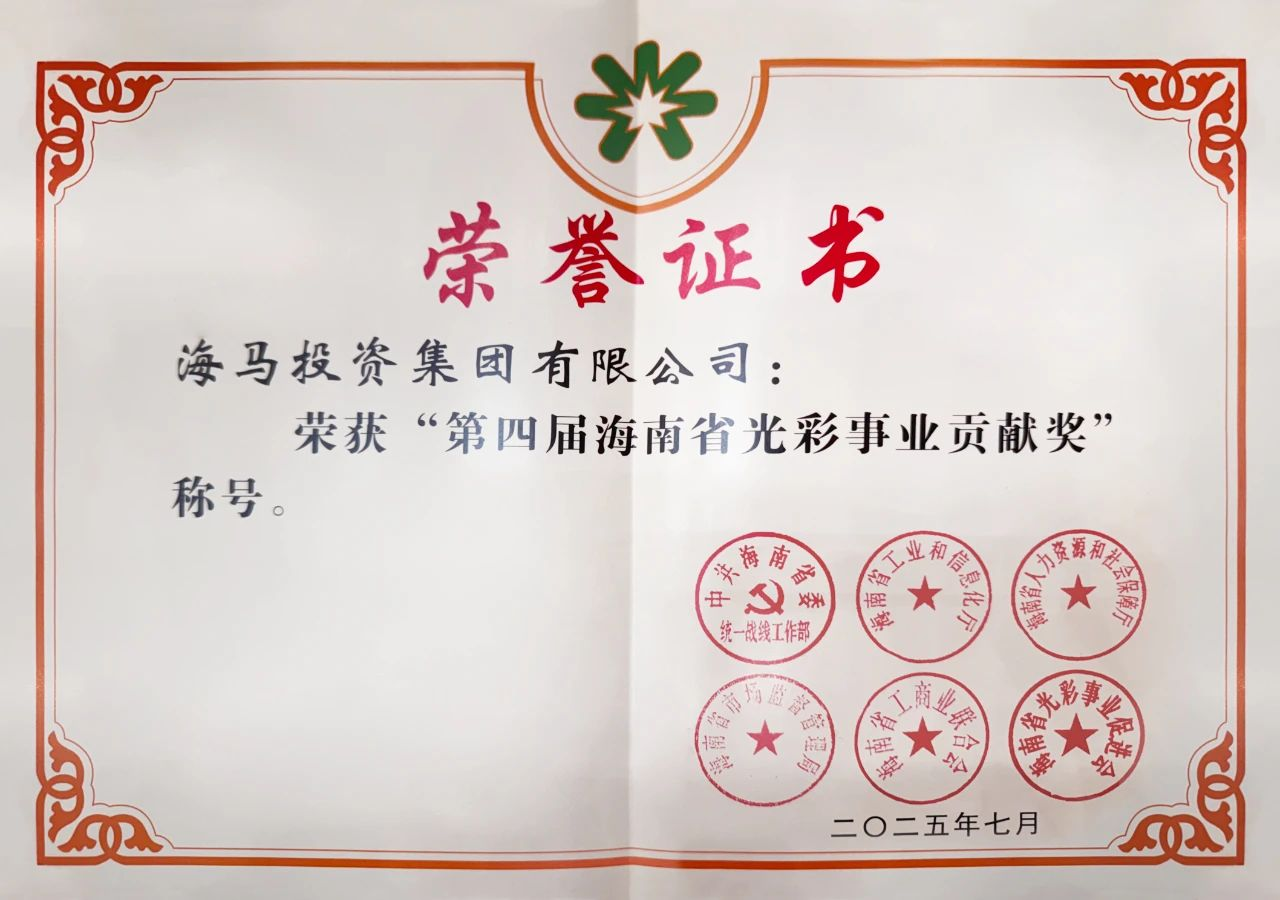 荣誉证书
海马投资集团有限公司：
荣获“第四届海南省光彩事业贡献奖”
称号。
中共海南省委
统一战线工作部
海南省工业和信息化厅
海南省人力资源和社会保障厅
海南省市场监督管理局
海南省工商业联合会
海南省光彩事业促进会
二〇二五年七月